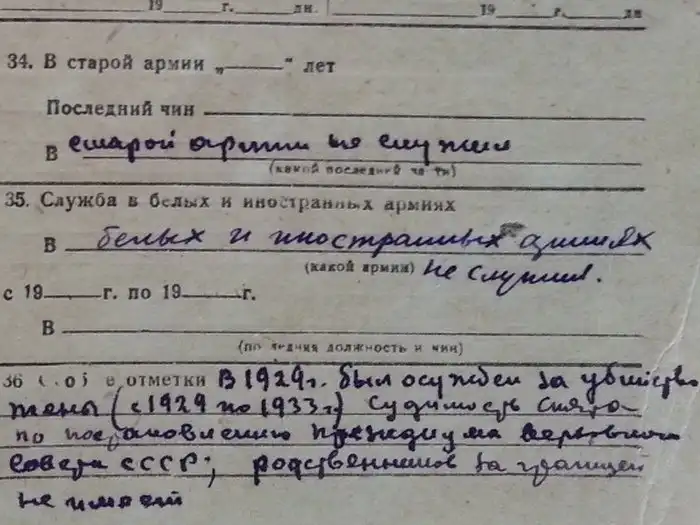 19 г. дн. 19 г. дн
34. В старой армии „ “ лет
Последний чин
В старой армии не служил
(какой последней части)
35. Служба в белых и иностранных армиях
В белых и иностранных армиях
(какой армии) не служил.
с 19 г. по 19 г.
В
(последняя должность и чин)
36 отметки В 1929г. был осужден за убийство
жены (с 1929 по 1933г) Судимость снята
по постановлению президиума верховного
Совета СССР; родственников за границей
не имеет